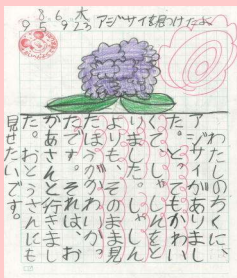 8.6.木
9 5 9 23
アジサイを見つけたよ
わたしのちくに、
アジサイがありまし
た。とってもかわい
くて、しゃしんをと
いました。しゃしん
よりも、そのまま見
たほうがかわいかっ
たです。それは、お
かあさんと行きまし
た。おとうさんにも
見せたいです。